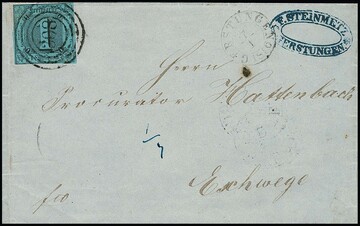 F. STEINMETZ
GERSTUNGEN
Herrn
Procurator Hattenbach
fco.
Eschwege